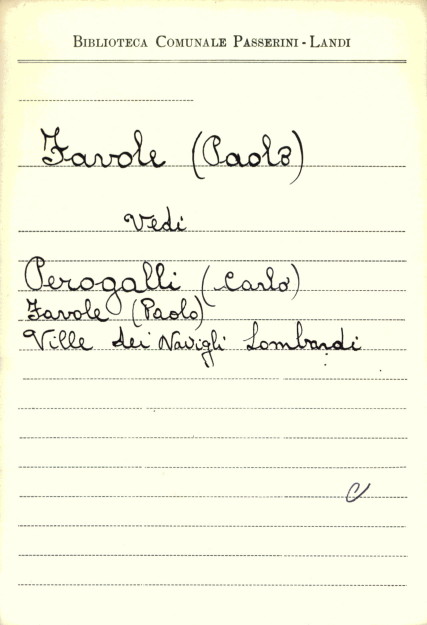 BIBLIOTECA COMUNALE PASSERINI - LANDI
Favole (Paolo)
Vedi
Perogalli (Carlo)
Favole (Paolo)
Ville dei Navigli Lombardi